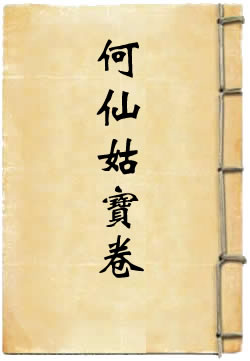 何仙姑寶卷